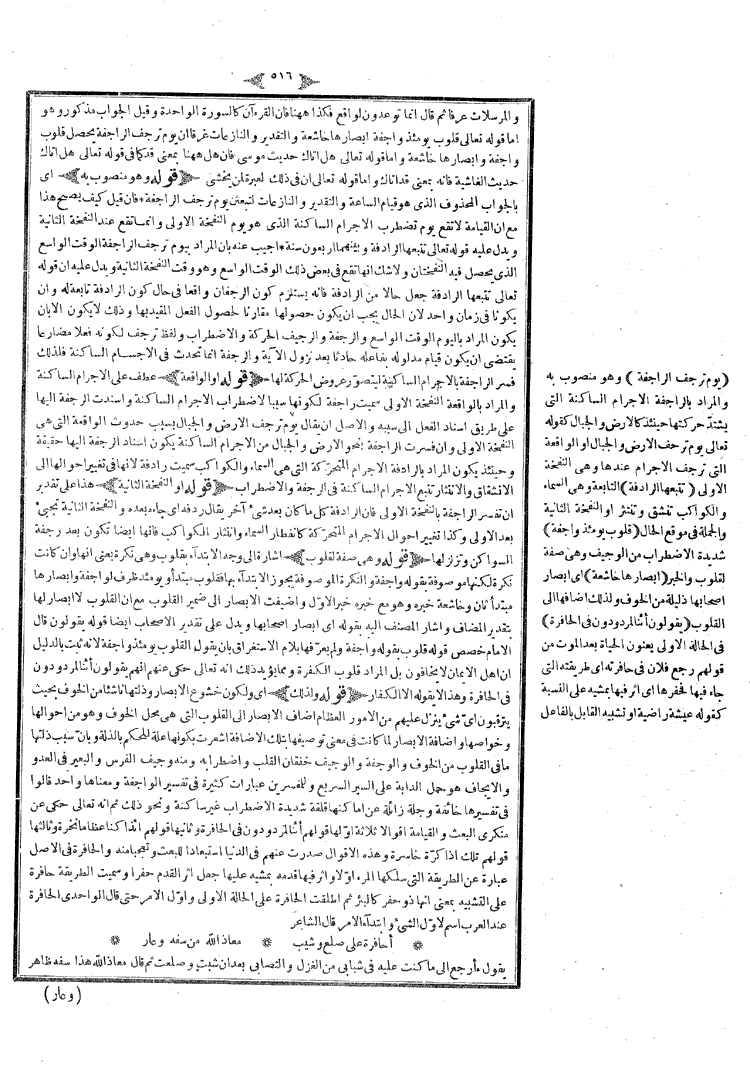 ٥١٦
والمرسلات عرفا ثم قال انما توعدون لواقع فكذا ههنا فان القرءآن كالسورة الواحدة وقيل الجواب مذكور وهو
اما قوله تعالى قلوب يومئذ واجفة ابصارها خاشعة والتقدير والنازعات غرقا ان يوم ترجف الراجفة يحصل قلوب
واجفة وابصارها خاشعة واما قوله تعالى هل اتاك حديث موسى فان هل ههنا بمعنى قد كما فى قوله تعالى هل اتاك
حديث الغاشية فانه بمعنى قد اتاك واما قوله تعالى ان فى ذلك لعبرة لمن يخشى (قوله وهو منصوب به) اى
بالجواب المحذوف الذى هو قيام الساعة والتقدير والنازعات لتبعثن يوم ترجف الراجفة * فان قيل كيف يصح هذا
مع ان القيامة لا تقع يوم تضطرب الاجرام الساكنة الذى هو يوم النفخة الاولى وانما تقع عند النفخة الثانية
ويدل عليه قوله تعالى تتبعها الرادفة وبينهما اربعون سنة * اجيب عنه بان المراد بيوم ترجف الراجفة الوقت الواسع
الذى يحصل فيه النفختان ولا شك انها تقع فى بعض ذلك الوقت الواسع وهو وقت النفخة الثانية ويدل عليه ان قوله
تعالى تتبعها الرادفة جعل حالا من الرادفة فانه يستلزم كون الرجفان واقعا فى حال كون الرادفة تابعة له وان
يكونا فى زمان واحد لان الحال يجب ان يكون حصولها مقارنا لحصول الفعل المقيد بها وذلك لا يكون الا بان
يكون المراد باليوم الوقت الواسع والرجفة والرجيف الحركة والاضطراب ولفظ ترجف لكونه فعلا مضارعا
يقتضى ان يكون قيام مدلوله بفاعله حادثا بعد نزول الآية والرجفة انما تحدث فى الاجسام الساكنة فلذلك
فسر الراجفة بالاجرام الساكنة ليتصور عروض الحركة لها (قوله او الواقعة) عطف على الاجرام الساكنة
والمراد بالواقعة النفخة الاولى سميت راجفة لكونها سببا لاضطراب الاجرام الساكنة واسندت الرجفة اليها
على طريق اسناد الفعل الى سببه والاصل ان يقال يوم ترجف الارض والجبال بسبب حدوث الواقعة التى هى
النفخة الاولى وان فسرت الراجفة بنحو الارض والجبال من الاجرام الساكنة يكون اسناد الرجفة اليها حقيقة
وحينئذ يكون المراد بالرادفة الاجرام المتحركة التى هى السماء والكواكب سميت رادفة لانها فى تغيير احوالها الى
الانشقاق والانتثار تتبع الاجرام الساكنة فى الرجفة والاضطراب (قوله او النفخة الثانية) هذا على تقدير
ان تفسر الراجفة بالنفخة الاولى فان الرادفة كل ما كان بعد شئ آخر يقال ردفه اى جاء بعده والنفخة الثانية تجيئ
بعد الاولى وكذا تغيير احوال الاجرام المتحركة كانفطار السماء وانتثار الكواكب فانها ايضا تكون بعد رجفة
السواكن وتزلزلها (قوله وهى صفة لقلوب) اشارة الى وجه الابتدآء بقلوب وهى نكرة يعنى انها وان كانت
نكرة لكنها موصوفة بقوله واجفة والنكرة الموصوفة يجوز الابتدآء بها فقلوب مبتدأ ويومئذ ظرف لواجفة وابصارها
مبتدأ ثان وخاشعة خبره وهو مع خبره خبر الاول واضيفت الابصار الى ضمير القلوب مع ان القلوب لا ابصار لها
بتقدير المضاف واشار المصنف اليه بقوله اى ابصار اصحابها ويدل على تقدير الاصحاب ايضا قوله يقولون قال
الامام خصص قوله قلوب بقوله واجفة ولم يعرفها بلام الاستغراق بان يقول القلوب يومئذ واجفة لانه ثبت بالدليل
ان اهل الايمان لا يخافون بل المراد قلوب الكفرة ومما يؤيد ذلك انه تعالى حكى عنهم انهم يقولون أئنا لمردودون
فى الحافرة وهذا لا يقوله الا الكفار (قوله ولذلك) اى ولكون خشوع الابصار وذلتها ناشئا من الخوف بحيث
يترقبون اى شئ ينزل عليهم من الامور العظام اضاف الابصار الى القلوب التى هى محل الخوف وهو من احوالها
وخواصها واضافة الابصار لما كانت فى معنى توصيفها بتلك الاضافة اشعرت بكونها علة للحكم بالذلة وبان سبب ذلتها
ما فى القلوب من الخوف والوجفة والوجيف خفقان القلب واضطرابه ومنه وجيف الفرس والبعير فى العدو
والايجاف هو حمل الدابة على السير السريع وللمفسرين عبارات كثيرة فى تفسير الواجفة ومعناها واحد قالوا
فى تفسيرها خائفة وجلة زائلة عن اماكنها قلقة شديدة الاضطراب غير ساكنة ونحو ذلك ثم انه تعالى حكى عن
منكرى البعث والقيامة اقوالا ثلاثة اولها قولهم أئنا لمردودون فى الحافرة وثانيها قولهم ائذا كنا عظاما نخرة وثالثها
قولهم تلك اذا كرة خاسرة وهذه الاقوال صدرت عنهم فى الدنيا استبعادا للبعث وتعجبا منه والحافرة فى الاصل
عبارة عن الطريقة التى سلكها المرء اولا واثر فيها قدمه بمشيه عليها جعل اثر القدم حفرا وسميت الطريقة حافرة
على التشبيه بمعنى انها ذو حفر كالبئر ثم اطلقت الحافرة على الحالة الاولى واول الامر حتى قال الواحدى الحافرة
عند العرب اسم لاول الشئ وابتدآء الامر قال الشاعر
* أحافرة على صلع وشيب * معاذ الله من سفه وعار *
يقول ءأرجع الى ما كنت عليه فى شبابى من الغزل والتصابى بعد ان شبت وصلعت ثم قال معاذ الله هذا سفه ظاهر
(وعار)
(يوم ترجف الراجفة) وهو منصوب به
والمراد بالراجفة الاجرام الساكنة التى
يشتد حركتها حينئذ كالارض والجبال كقوله
تعالى يوم ترجف الارض والجبال او الواقعة
التى ترجف الاجرام عندها وهى النفخة
الاولى (تتبعها الرادفة) التابعة وهى السماء
والكواكب تنشق وتنتثر او النفخة الثانية
والجملة فى موقع الحال (قلوب يومئذ واجفة)
شديدة الاضطراب من الوجيف وهى صفة
لقلوب والخبر (ابصارها خاشعة) اى ابصار
اصحابها ذليلة من الخوف ولذلك اضافها الى
القلوب (يقولون أئنا لمردودون فى الحافرة)
فى الحالة الاولى يعنون الحياة بعد الموت من
قولهم رجع فلان فى حافرته اى طريقته التى
جاء فيها فحفرها اى اثر فيها بمشيه على النسبة
كقوله عيشة راضية او تشبيه القابل بالفاعل